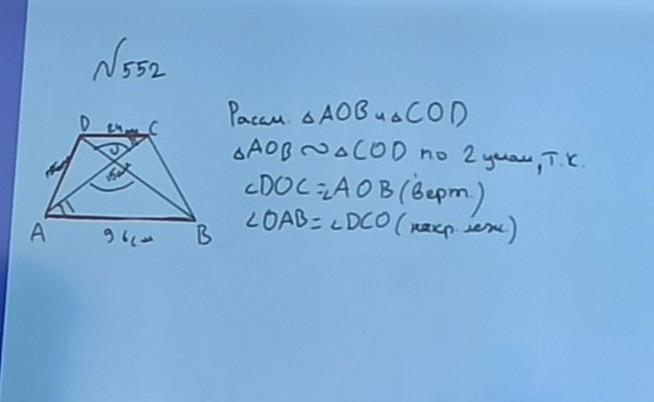 N552
D 24см C
О
15см
A 96см B
Рассм. △AOB и △COD
△AOB ∾ △COD по 2 углам, т.к.
∠DOC = ∠AOB (верт.)
∠OAB = ∠DCO (накр. леж)